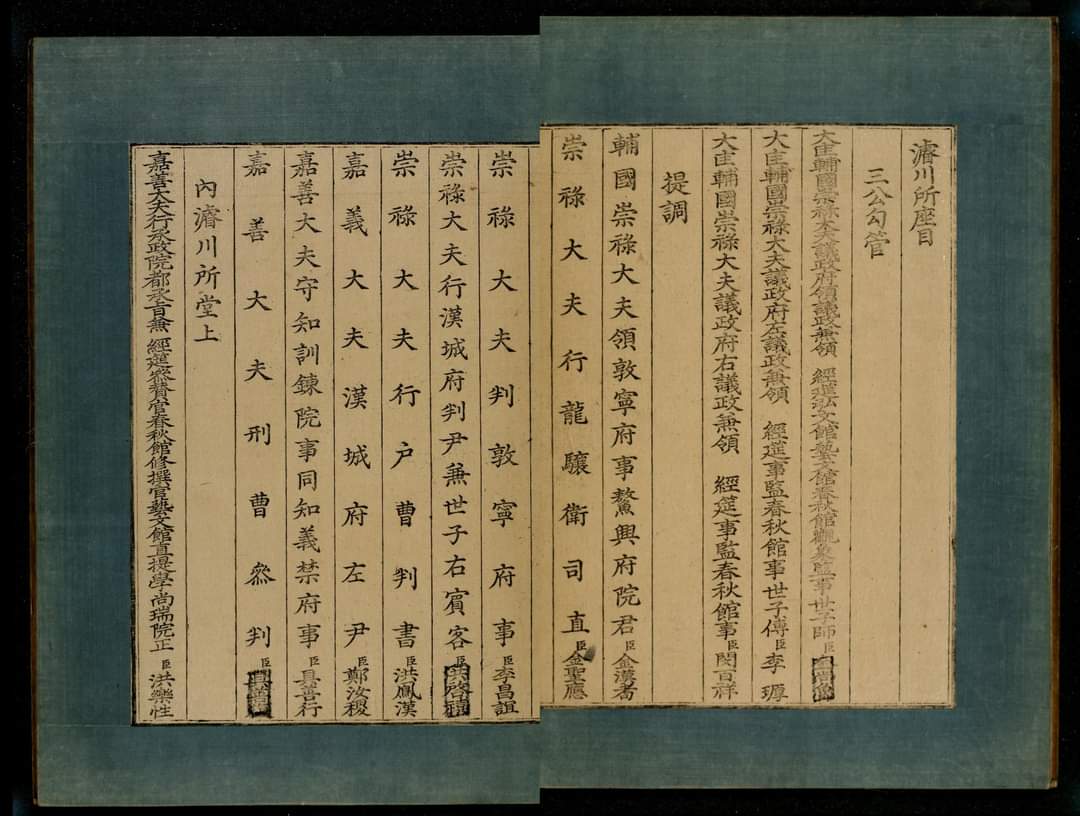 濬川所座目
三公勾管
大匡輔國崇祿大夫議政府領議政兼領 經筵弘文館藝文館春秋館觀象監事世子師臣
大匡輔國崇祿大夫議政府左議政兼領 經筵事監春秋館事世子傅臣李㙫
大匡輔國崇祿大夫議政府右議政兼領 經筵事監春秋館事臣閔百祥
提調
輔國崇祿大夫領敦寧府事鰲興府院君臣金漢耉
崇祿大夫行龍驤衛司直臣金聖應
崇祿大夫判敦寧府事臣李昌誼
崇祿大夫行漢城府判尹兼世子右賓客臣洪啓禧
崇祿大夫行戶曹判書臣洪鳳漢
嘉義大夫漢城府左尹臣鄭汝稷
嘉善大夫守知訓鍊院事同知義禁府事臣具善行
嘉善大夫刑曹叅判臣
內濬川所堂上
嘉善大夫行承政院都承旨兼 經筵叅贊官春秋館修撰官藝文館直提學尚瑞院正臣洪樂性